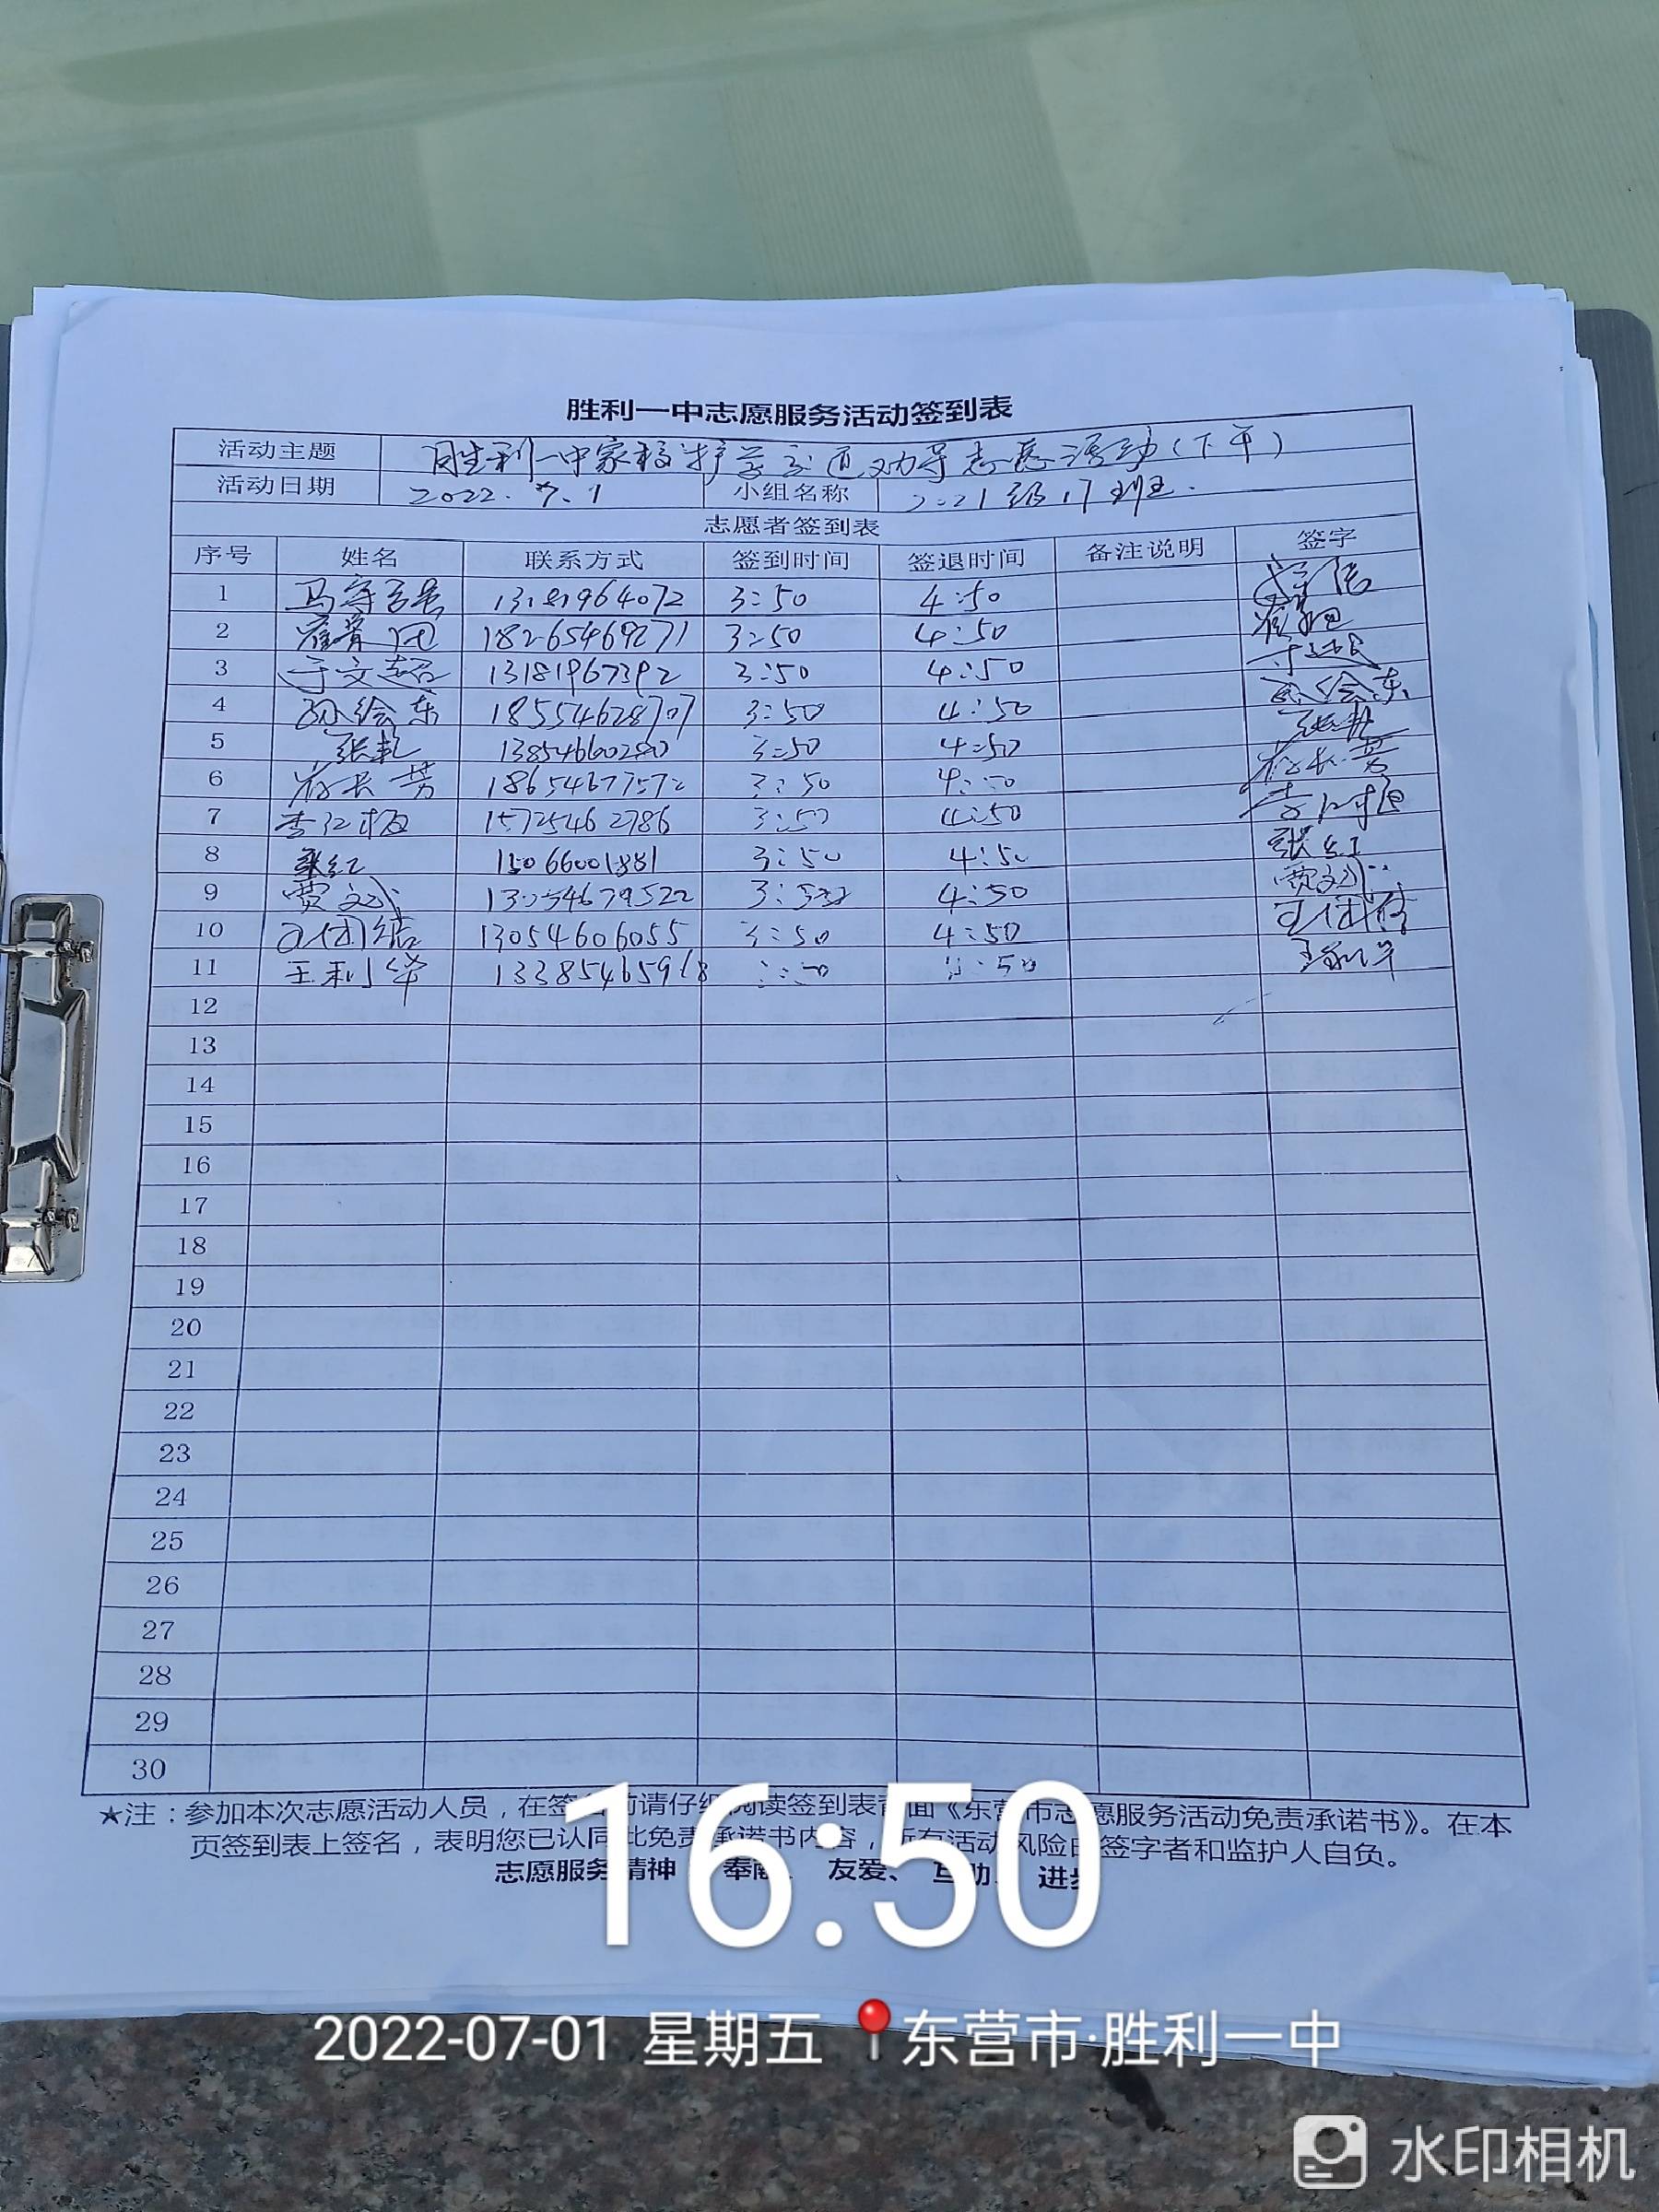 胜利一中志愿服务活动签到表
活动主题 胜利一中家校护学交通劝导志愿活动(下午)
活动日期 2022.7.1 小组名称 2021级17班.
志愿者签到表
序号 姓名 联系方式 签到时间 签退时间 备注说明 签字
1 3:50 4:50
2 18265469271 3:50 4:50
3 于文超 13181967392 3:50 4:50
4 孙绘东 18554628707 3:50 4:50 孙绘东
5 张艳 3:50 4:50 张艳
6 崔长芳 3:50 崔长芳
7 15725462786 3:50 4:50
8 张红 15066001881 3:50 4:50 张红
9 4:50
10 王团结 13054606055 3:50 4:50 王团结
11 王利华 13385465968 王利华
12
13
14
15
16
17
18
19
20
21
22
23
24
25
26
27
28
29
30
★注：参加本次志愿活动人员，在签名前请仔细阅读签到表背面《东营市志愿服务活动免责承诺书》。在本
页签到表上签名，表明您已认同此免责承诺书内容，所有活动风险由签字者和监护人自负。
志愿服务精神 奉献、 友爱、 互助、 进步
16:50
2022-07-01 星期五 东营市·胜利一中
水印相机